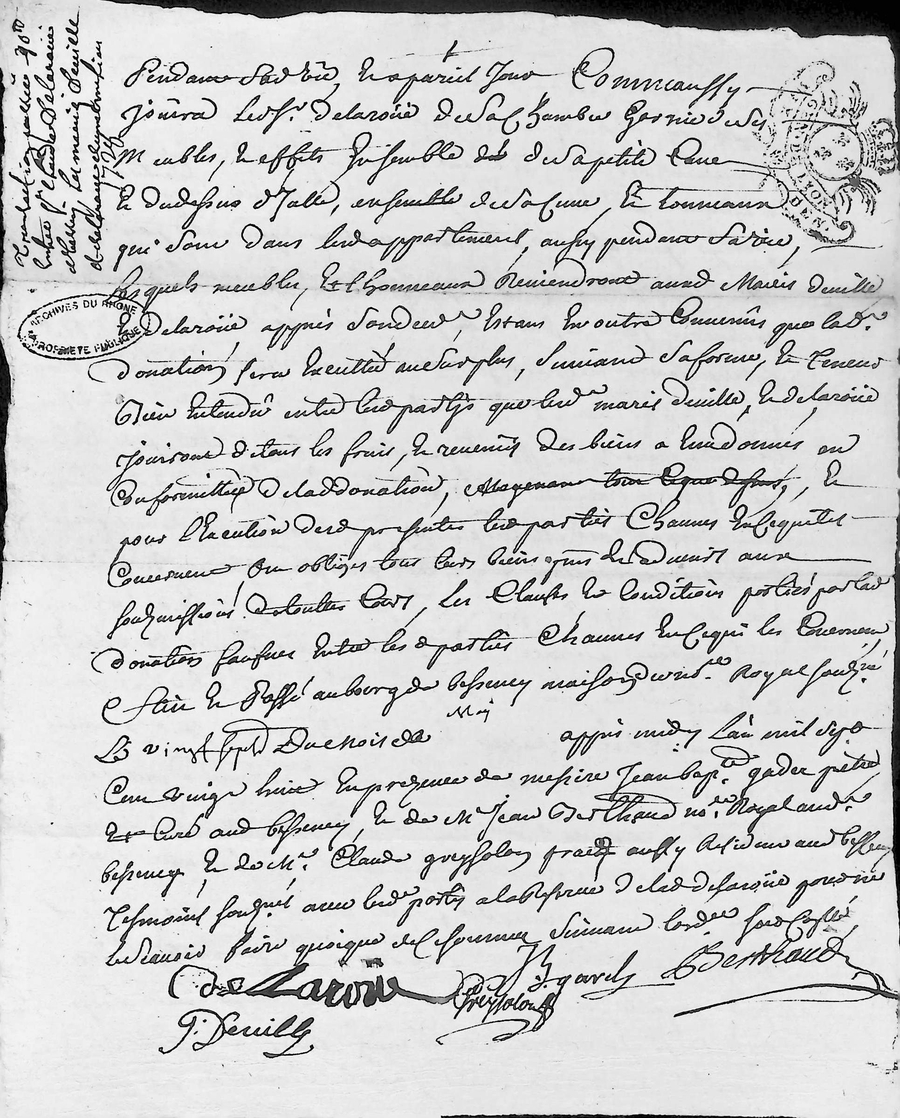 Transaction passée
entre Sr Claude Delaroüe
mariés Deville
et delaroüe
1728
Pendant Sad vie, et a pareil Jour Comme aussy
Joüira ledt Sr. delaroüe de Sa Chambre Garnie de Ses
Meubles, et effets Ensemble de Sa petite Cave
et du dessus d'Jcelle, ensemble de Sa Cuve, et tonneaux
qui Sont dans led appartement, aussy pendant Sa vie,
Lesquels meubles, et thonneaux Reviendront auxd Mariés deville
et Delaroüe, apprés Son deced, Estant En outre Convenus que lade
donation Sera Executtée au Surplus, Suivant Sa forme, et teneur
Bien Entendu entre lesd partyes que lesd mariés deville, et delaroüe
Joüiront de tous les fruis, et revenus des biens a Eux donnés en
Conformitté de lad donation, et
pour l'Execution des presentes lesd parties Chacunes En Ce qui les
Concernent On obligés tous leurs biens pns et advenir aux
Soubmissions de touttes Cours, les Clauses et Conditions portées par lad
donation entre lesd parties Chacunes En Ce qui les Concernent
et Passé au bourg de bessenay maison du nre Royal Soubné
Le vingt Sept Du mois de May appres midy L'an mil Sept
Cent vingt huit En presence de messire Jean Bapte gader pretre
et Curé aud bessenay, et de Me Jean Berthaud nore Royal aud
bessenay, et de Me Claude greysolon aussy Residents aud bessenay
tesmoins Soubnés avec lesd parties a la Reserve de lad delaroüe pour ne
le Sçavoir faire quoique de Ce Sommée Suivant l'orde
De Laroüe
Greysolon
Berthaud
P. Deville
ARCHIVES DU RHÔNE
PROPRIÉTÉ PUBLIQUE